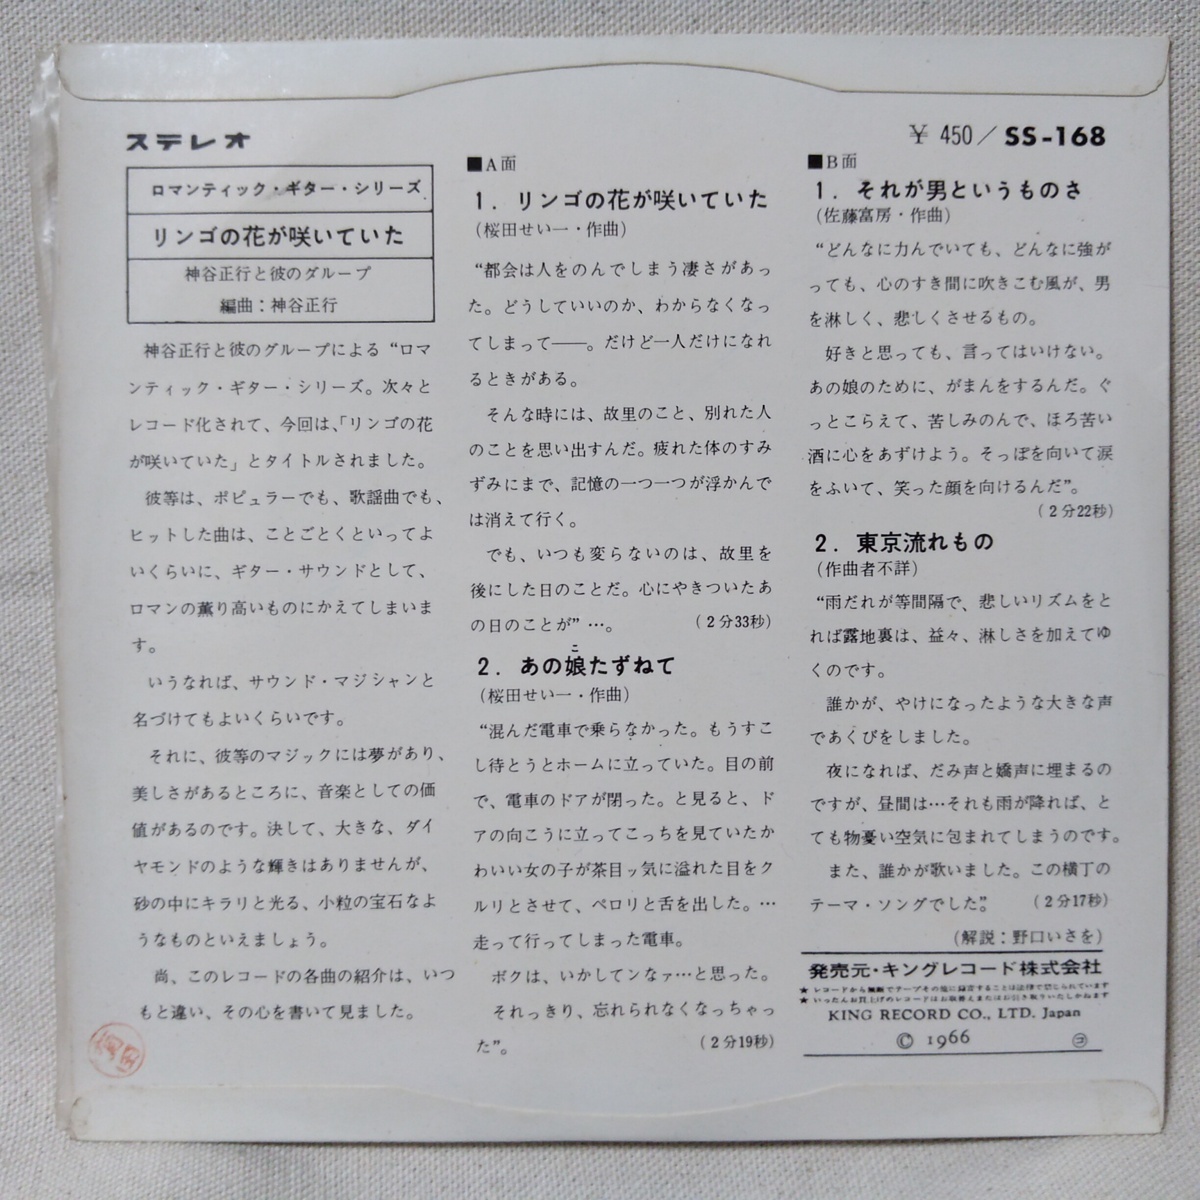 ステレオ
ロマンティック・ギター・シリーズ
リンゴの花が咲いていた
神谷正行と彼のグループ
編曲：神谷正行
神谷正行と彼のグループによる“ロマ
ンティック・ギター・シリーズ。次々と
レコード化されて、今回は、「リンゴの花
が咲いていた」とタイトルされました。
彼等は、ポピュラーでも、歌謡曲でも、
ヒットした曲は、ことごとくといってよ
いくらいに、ギター・サウンドとして、
ロマンの薫り高いものにかえてしまいま
す。
いうなれば、サウンド・マジシャンと
名づけてもよいくらいです。
それに、彼等のマジックには夢があり、
美しさがあるところに、音楽としての価
値があるのです。決して、大きな、ダイ
ヤモンドのような輝きはありませんが、
砂の中にキラリと光る、小粒の宝石なよ
うなものといえましょう。
尚、このレコードの各曲の紹介は、いつ
もと違い、その心を書いて見ました。
■A面
1．リンゴの花が咲いていた
(桜田せい一・作曲)
“都会は人をのんでしまう凄さがあっ
た。どうしていいのか、わからなくなっ
てしまって――。だけど一人だけになれ
るときがある。
そんな時には、故里のこと、別れた人
のことを思い出すんだ。疲れた体のすみ
ずみにまで、記憶の一つ一つが浮かんで
は消えて行く。
でも、いつも変らないのは、故里を
後にした日のことだ。心にやきついたあ
の日のことが”…。 (2分33秒)
こ
2．あの娘たずねて
(桜田せい一・作曲)
“混んだ電車で乗らなかった。もうすこ
し待とうとホームに立っていた。目の前
で、電車のドアが閉った。と見ると、ド
アの向こうに立ってこっちを見ていたか
わいい女の子が茶目ッ気に溢れた目をク
ルリとさせて、ペロリと舌を出した。…
走って行ってしまった電車。
ボクは、いかしてンなァ…と思った。
それっきり、忘れられなくなっちゃっ
た”。 (2分19秒)
¥ 450／SS-168
■B面
1．それが男というものさ
(佐藤富房・作曲)
“どんなに力んでいても、どんなに強が
っても、心のすき間に吹きこむ風が、男
を淋しく、悲しくさせるもの。
好きと思っても、言ってはいけない。
あの娘のために、がまんをするんだ。ぐ
っとこらえて、苦しみのんで、ほろ苦い
酒に心をあずけよう。そっぽを向いて涙
をふいて、笑った顔を向けるんだ”。
(2分22秒)
2．東京流れもの
(作曲者不詳)
“雨だれが等間隔で、悲しいリズムをと
れば露地裏は、益々、淋しさを加えてゆ
くのです。
誰かが、やけになったような大きな声
であくびをしました。
夜になれば、だみ声と嬌声に埋まるの
ですが、昼間は…それも雨が降れば、と
ても物憂い空気に包まれてしまうのです。
また、誰かが歌いました。この横丁の
テーマ・ソングでした”。 (2分17秒)
(解説：野口いさを)
発売元・キングレコード株式会社
★ レコードから無断でテープその他に録音することは法律で禁じられています
★ いったんお買上げのレコードはお取替えまたはお引き取りいたしかねます
KING RECORD CO., LTD. Japan
© 1966 ㋙